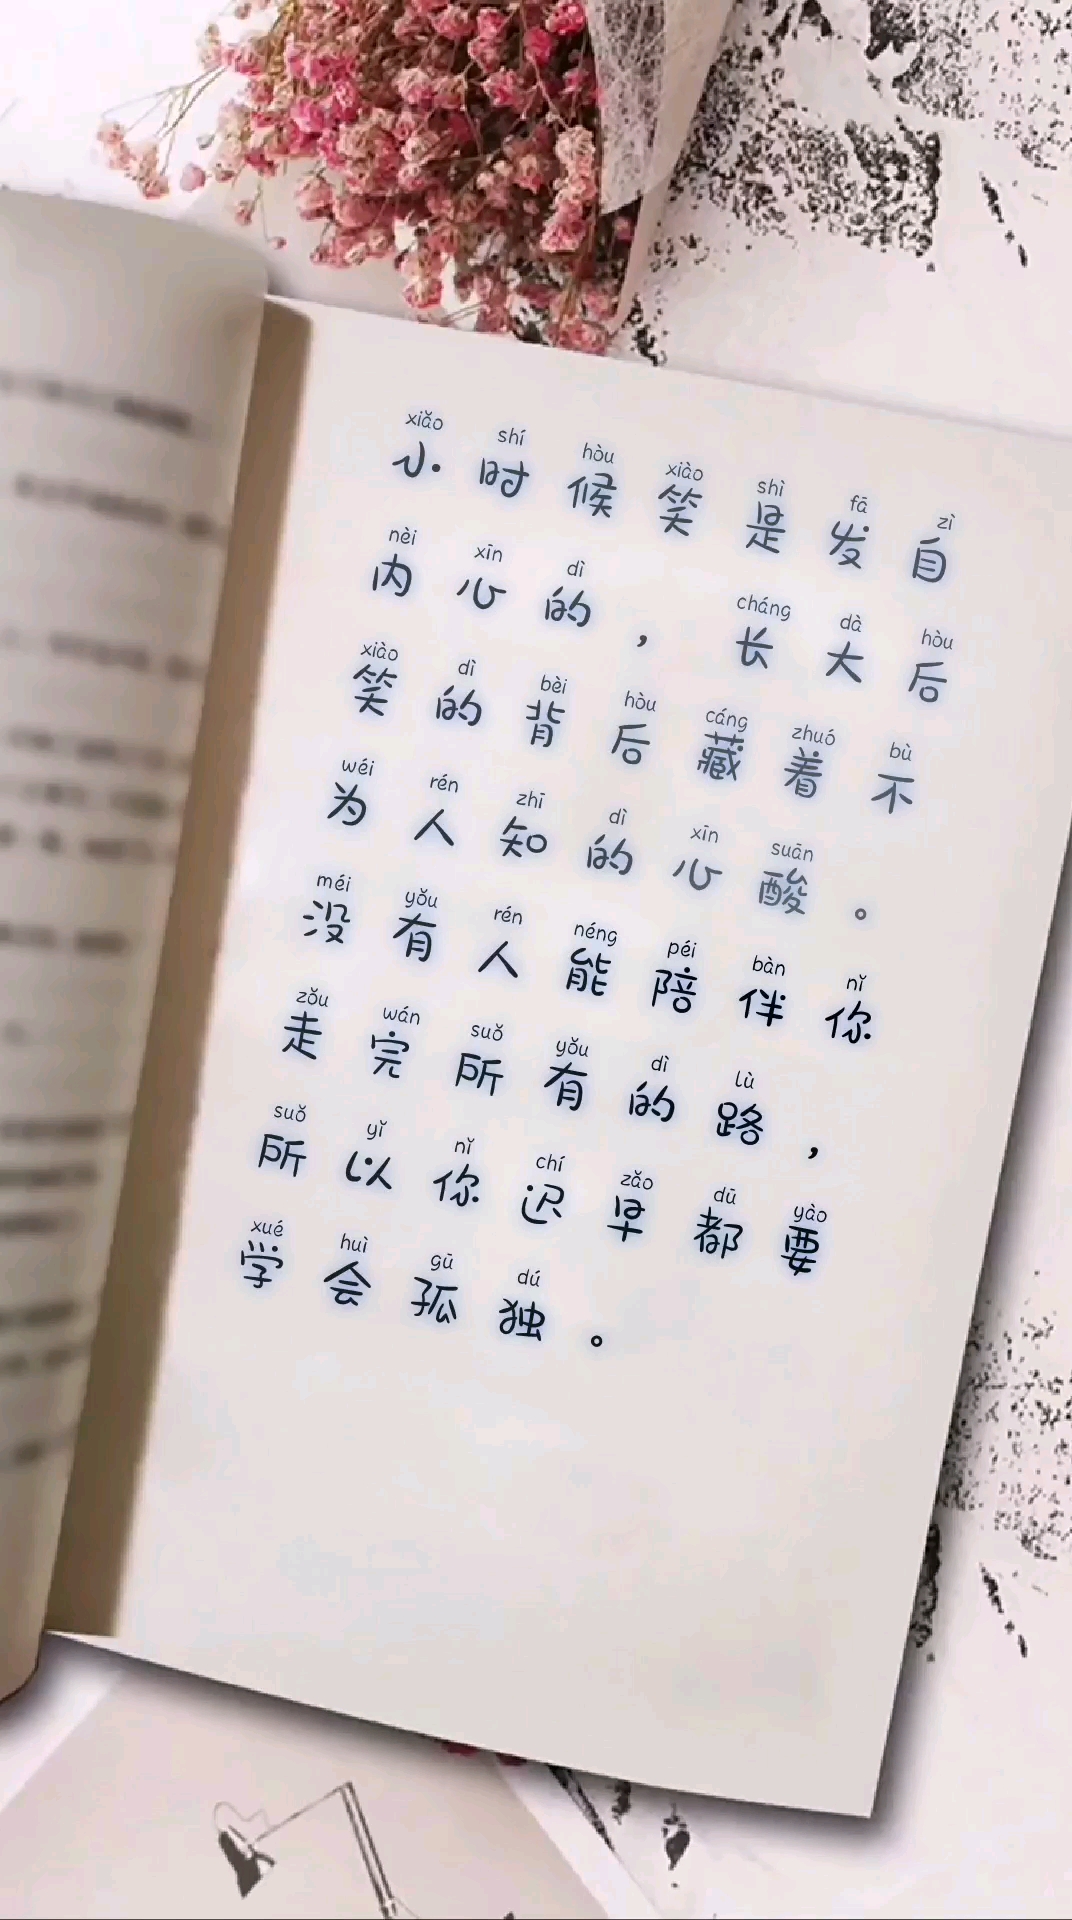 xiǎo shí hòu xiào shì fā zì
小时候笑是发自
nèi xīn dì cháng dà hòu
内心的，长大后
xiào dì bèi hòu cáng zhuó bù
笑的背后藏着不
wéi rén zhī dì xīn suān
为人知的心酸。
méi yǒu rén néng péi bàn nǐ
没有人能陪伴你
zǒu wán suǒ yǒu dì lù
走完所有的路，
suǒ yǐ nǐ chí zǎo dū yào
所以你迟早都要
xué huì gū dú
学会孤独。